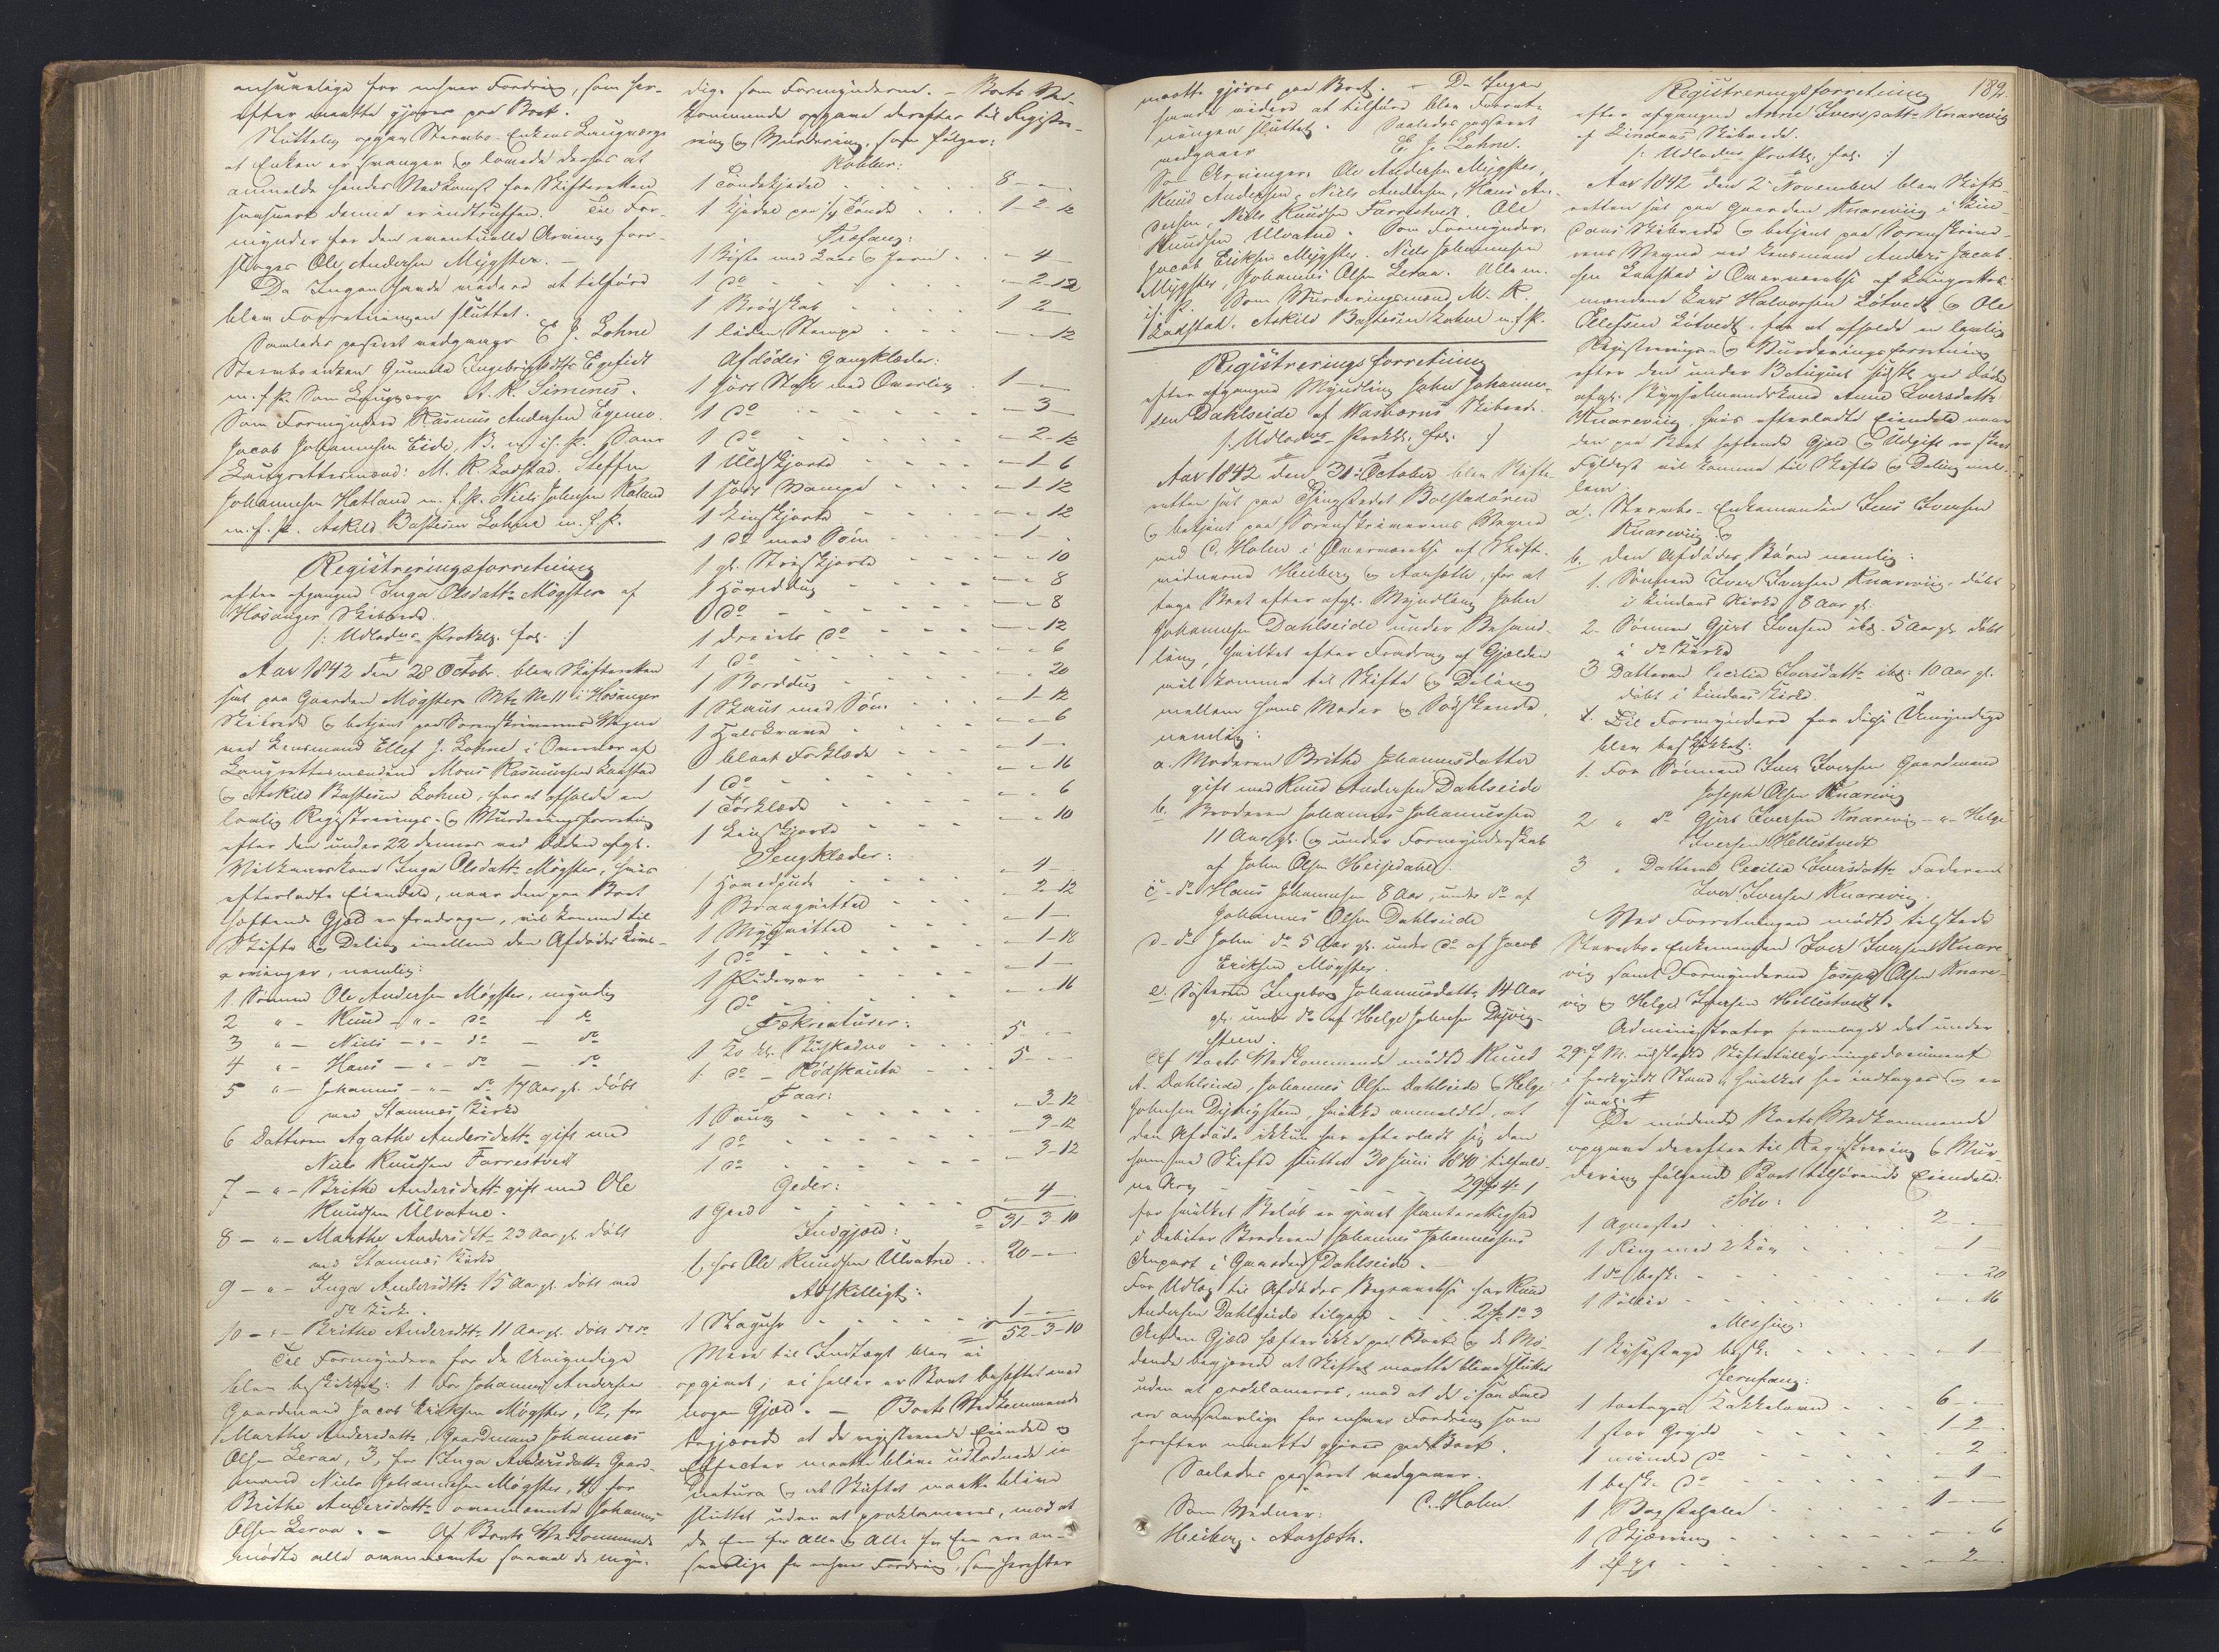 ansvarlige for enhver Fordring, som her-
efter maatte gjøres paa Boet.
Sluttelig opgav Stervbo-Enkens Laugværge
at Enken er svanger og lovede derfor at
anmelde hendes Nedkomst for Skifteretten
saasnart denne er indtruffen. Til For-
mynder for den eventuelle Arving fore-
sloges Ole Andersen Møgster.
Da Ingen havde videre at tilføre
blev Forretningen sluttet.
Saaledes passeret vedgaaer E. J. Lohne
Stervboenken Gunnela Ingebrigtsdtr Egefidt
m. f. P. Som Laugværge A. K. Simenes.
Som Formyndere Rasmus Andersen Egemo.
Jacob Johannesen Eide, B. m. ih. P. Som
Laugrettesmænd: M. R. Lagstad. Steffen
Johannesen Hatland m. f. P. Niels Johnsen Roland
m. f. P. Askild Bastesen Lohne m. f. P.
Registreringsforretning
efter afgangne Inga Olsdattr Møgster af
Hosanger Skibrede
/: Udlodns Prottkl. fol. :/
Aar 1842 den 28 Octobr. blev Skifteretten
sat paa Gaarden Møgster Mtr No 11 i Hosanger
Skibrede og betjent paa Sorenskriverens Vegne
ved Lensmand Ellef J. Lohne i Overvær af
Laugrettesmændene Mons Rasmussen Lagstad
og Askild Bastesen Lohne, for at afholde en
lovlig Registrerings- og Vurderingsforretning
efter den under 22 dennes ved Døden afgl.
Inga Olsdattr Møgster, hvis
efterladte Eiendele, naar den paa Boet
heftende Gjæld er fradragen, vil komme til
Skifte og Deling imellem den Afdødes Livs-
arvinger, nemlig:
1. Sønnen Ole Andersen Møgster, myndig
2 " - Knud - " - do - do
3 " - Niels - " - do - do
4 " - Hans - " - do - do
5 " - Johannes - " - do 17 Aar gl. døbt
ved Stamnes Kirke
6 Datteren Agathe Andersdattr gift med
Niels Knudsen Farrestvedt
7 - " - Brithe Andersdattr gift med Ole
Knudsen Ulvatne.
8 - " - Marthe Andersdtr 23 Aar gl. døbt
ved Stamnes Kirke
9 - " - Inga Andersdtr 15 Aar gl. døbt ved
do Kirke.
10 - " - Brithe Andersdtr 11 Aar gl. døbt do
Til Formyndere for de Umyndige
blev beskikket: 1 For Johannes Andersen
Gaardmand Jacob Eriksen Møgster, 2, for
Marthe Andersdattr, Gaardmand Johannes
Olsen Leraa, 3, for Inga Andersdattr Gaard-
mand Niels Johannesen Møgster, 4, for
Brithe Andersdattr ovennævnte Johannes
Olsen Leraa. - Af Boets Vedkommende
mødte alle ovennævnte saavel de myn-
dige som Formynderne. - Boets Ved-
kommende opgave derefter til Registre-
ring og Vurdering, som følger:
Kobber:
1 Tøndekjedel 8 - -
1 Kjedel paa 1/4 Tønde 1-2-12
Træfang:
1 Kiste med Laas og Jern - 4 -
1 do - 2-12
1 Brødskab 1 2 -
1 liden Stampe - - 12
Afdødes Gangklæder:
1 sort Stak med Overliv 1 - -
1 do - 3 -
1 do - 2-12
1 Uldskjorte - 1-6
1 sort - 1-12
1 Linskjorte - - 12
1 do med Søm - 1 -
1 gl. Strieskjorte - - 10
1 Hoveddug - - 8
1 do - - 8
1 dreiels do - - 12
1 do - - 6
1 Borddug - - 20
1 Skaut med Søm - 1-12
1 Halskrave - - 6
1 blaat Forklæde - 1 -
1 do - - 16
1 Tørklæde - - 6
1 Linskjorte - - 10
Sengklæder:
1 Hovedpude - 4 -
1 Brangvittel - 2-12
1 - 1 -
1 do - 1-18
1 Pudevar - 1 -
1 do - - 16
Fækreaturer:
1 Ko kl. 5 - -
1 do - 5 - -
Faar:
1 Soug - 3-12
1 do - 3-12
1 do - 3-12
Geder:
1 Geed - 4 -
= 31-3-10
Indgjæld:
hos Ole Knudsen Ulvatne 20 - -
Adskilligt:
1 Staguhr 1 - -
= 52-3-10
Mere til Indtægt blev ei
opgivet; ei heller er Boet beheftet med
nogen Gjæld. - Boets Vedkommende
begjærede at de registrerede Eiendele og
Effecter maatte blive udloddede in
natura og at Skiftet maatte blive
sluttet uden at proklameres, mod at
de En for Alle og Alle for Een ere an-
svarlige for enhver Fordring, som herefter
maatte gjøres paa Boet. - Da Ingen
havde videre at tilføre blev Forret-
ningen sluttet. Saaledes passeret
vedgaaer E. J. Lohne.
Som Arvinger: Ole Andersen Møgster,
Knud Andersen, Niels Andersen, Hans An-
dersen, Niels Knudsen Farrestvedt. Ole
Knudsen Ulvatne. Som Formyndere:
Jacob Eriksen Møgster. Niels Johannesen
Møgster, Johannes Olsen Leraa. Alle m.
ih. P. Som Vurderingsmænd M. R.
Lagstad. Askild Bastesen Lohne m. f. P.
Registreringsforretning
efter afgangne Myndling John Johannes-
sen Dahlseide af Skibrede.
/: Udlodns Prottkl. fol. :/
Aar 1842 den 31te October blev Skifte-
retten sat paa Thingstedet Bolstadøren
og betjent paa Sorenskriverens Vegne
ved C. Holm i Overværelse af Skift-
vidnerne Heiberg og Aarseth, for at
tage Boet efter afgl. Myndling John
Johannesen Dahlseide under Behand-
ling, hvilket efter Fradrag af Gjælden
vil komme til Skifte og Deling
mellem hans Moder og Sødskende,
nemlig:
a. Moderen Brithe Johannesdatter
gift med Knud Andersen Dahlseide
b. Broderen Johannes Johannessen
11 Aar gl. og under Formynderskab
af John Olsen Heisedahl.
c - do Hans Johannesen 8 Aar, under do af
Johannes Olsen Dahlseide
d - do John do 5 Aar gl. under do af Jacob
Eriksen Møgster.
e. Søsteren Ingeborg Johannesdattr 14 Aar
gl. under do af Helge Johnsen Dyvig-
steen.
Af Boets Vedkommende mødte Knud
A. Dahlseide, Johannes Olsen Dahlseide og Helge
Johnsen Dyvigsteen, hvilke anmeldte, at
den Afdøde ikkun har efterladt sig den
ham ved Skifte sluttet 30 Juni 1840 tilfald-
ne Arv 29 4 1
for hvilket Beløb er givet Panterettighed
i Debitor Broderen Johannes Johannessens
Anpart i Gaarden Dahlseide.
For Udlæg til Afdødes Begravelse har Knud
Andersen Dahlseide tilgode 2 1 3
Anden Gjæld hefter ikke paa Boet og de Mø-
dende begjærede at Skiftet maatte blive sluttet
uden at proklameres, mod at de i saa Fald
ere ansvarlige for enhver Fordring som
herefter maatte gjøres paa Boet.
Saaledes passeret vedgaaer.
C. Holm
Som Vidner:
Heiberg. Aarseth.
189.
Registreringsforretning
efter afgangne Anne Iversdattr Knarevig
af Lindaas Skibrede.
/: Udlodns Prottkl. fol. :/
Aar 1842 den 2 November blev Skifte-
retten sat paa Gaarden Knarevig i Lin-
daas Skibrede og betjent paa Sorenskrive-
rens Vegne ved Lensmand Anders Jacob-
sen i Overværelse af Laugrettes-
mændene Lars Halvorsen Lotvedt og Ole
Ellefsen Lotvedt, for at afholde en lovlig
Registrerings- og Vurderingsforretning
efter den under 13 August sidstl. ved Døden
afgl. Anne Iversdattr
Knarevig, hvis efterladte Eiendele naar
den paa Boet heftende Gjæld og Udgift er skeet
Fyldest vil komme til Skifte og Deling mel-
lem
a. Stervbo-Enkemanden Iver Iversen
Knarevig og
b. den Afdødes Børn nemlig:
1. Sønnen Iver Iversen Knarevig, døbt
i Lindaas Kirke 8 Aar gl.
2. Sønnen Gjert Iversen ibd. 5 Aar gl. døbt
i do Kirke
3 Datteren Cecilia Iversdattr ibd: 10 Aar gl.
døbt i Lindaas Kirke.
Til Formyndere for disse Umyndige
blev beskikket:
1. For Sønnen Iver Iversen Gaardmand
Joseph Olsen Knarevig
2 " do Gjert Iversen Knarevig - " - Helge
Iversen Hellestvedt
3 " Datteren Cecilia Iversdattr Faderen
Iver Iversen Knarevig.
Ved Forretningen mødte tilstede
Stervbo-Enkemanden Iver Iversen Knare-
vig samt Formynderne Joseph Olsen Knare-
vig og Helge Iversen Hellestvedt.
Administrator fremlagde det under
29 f. M. udstedte Skiftetillysningsdocument
i forkyndt Stand, hvilket her indtages og er
saal:
De mødende Boets Vedkommende
opgave derefter til Registrering og Vur-
dering følgende Boet tilhørende Eiendele:
Sølv:
1 2 - -
1 Ring med 2 Løv - 1 -
1 do besk. - - 20
1 - - 16
Messing:
1 Lysestage besk. - 1 -
Jernfang:
1 toetages Kakkelovn 6 - -
1 stor Gryde 1-2-
1 mindre do - 2 -
1 besk. do - 1 -
1 Bagstehelle 1 - -
1 Skjæring - - 6
1 - 2 -